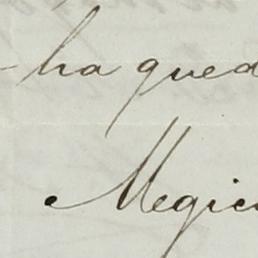 - ha qued
Megic